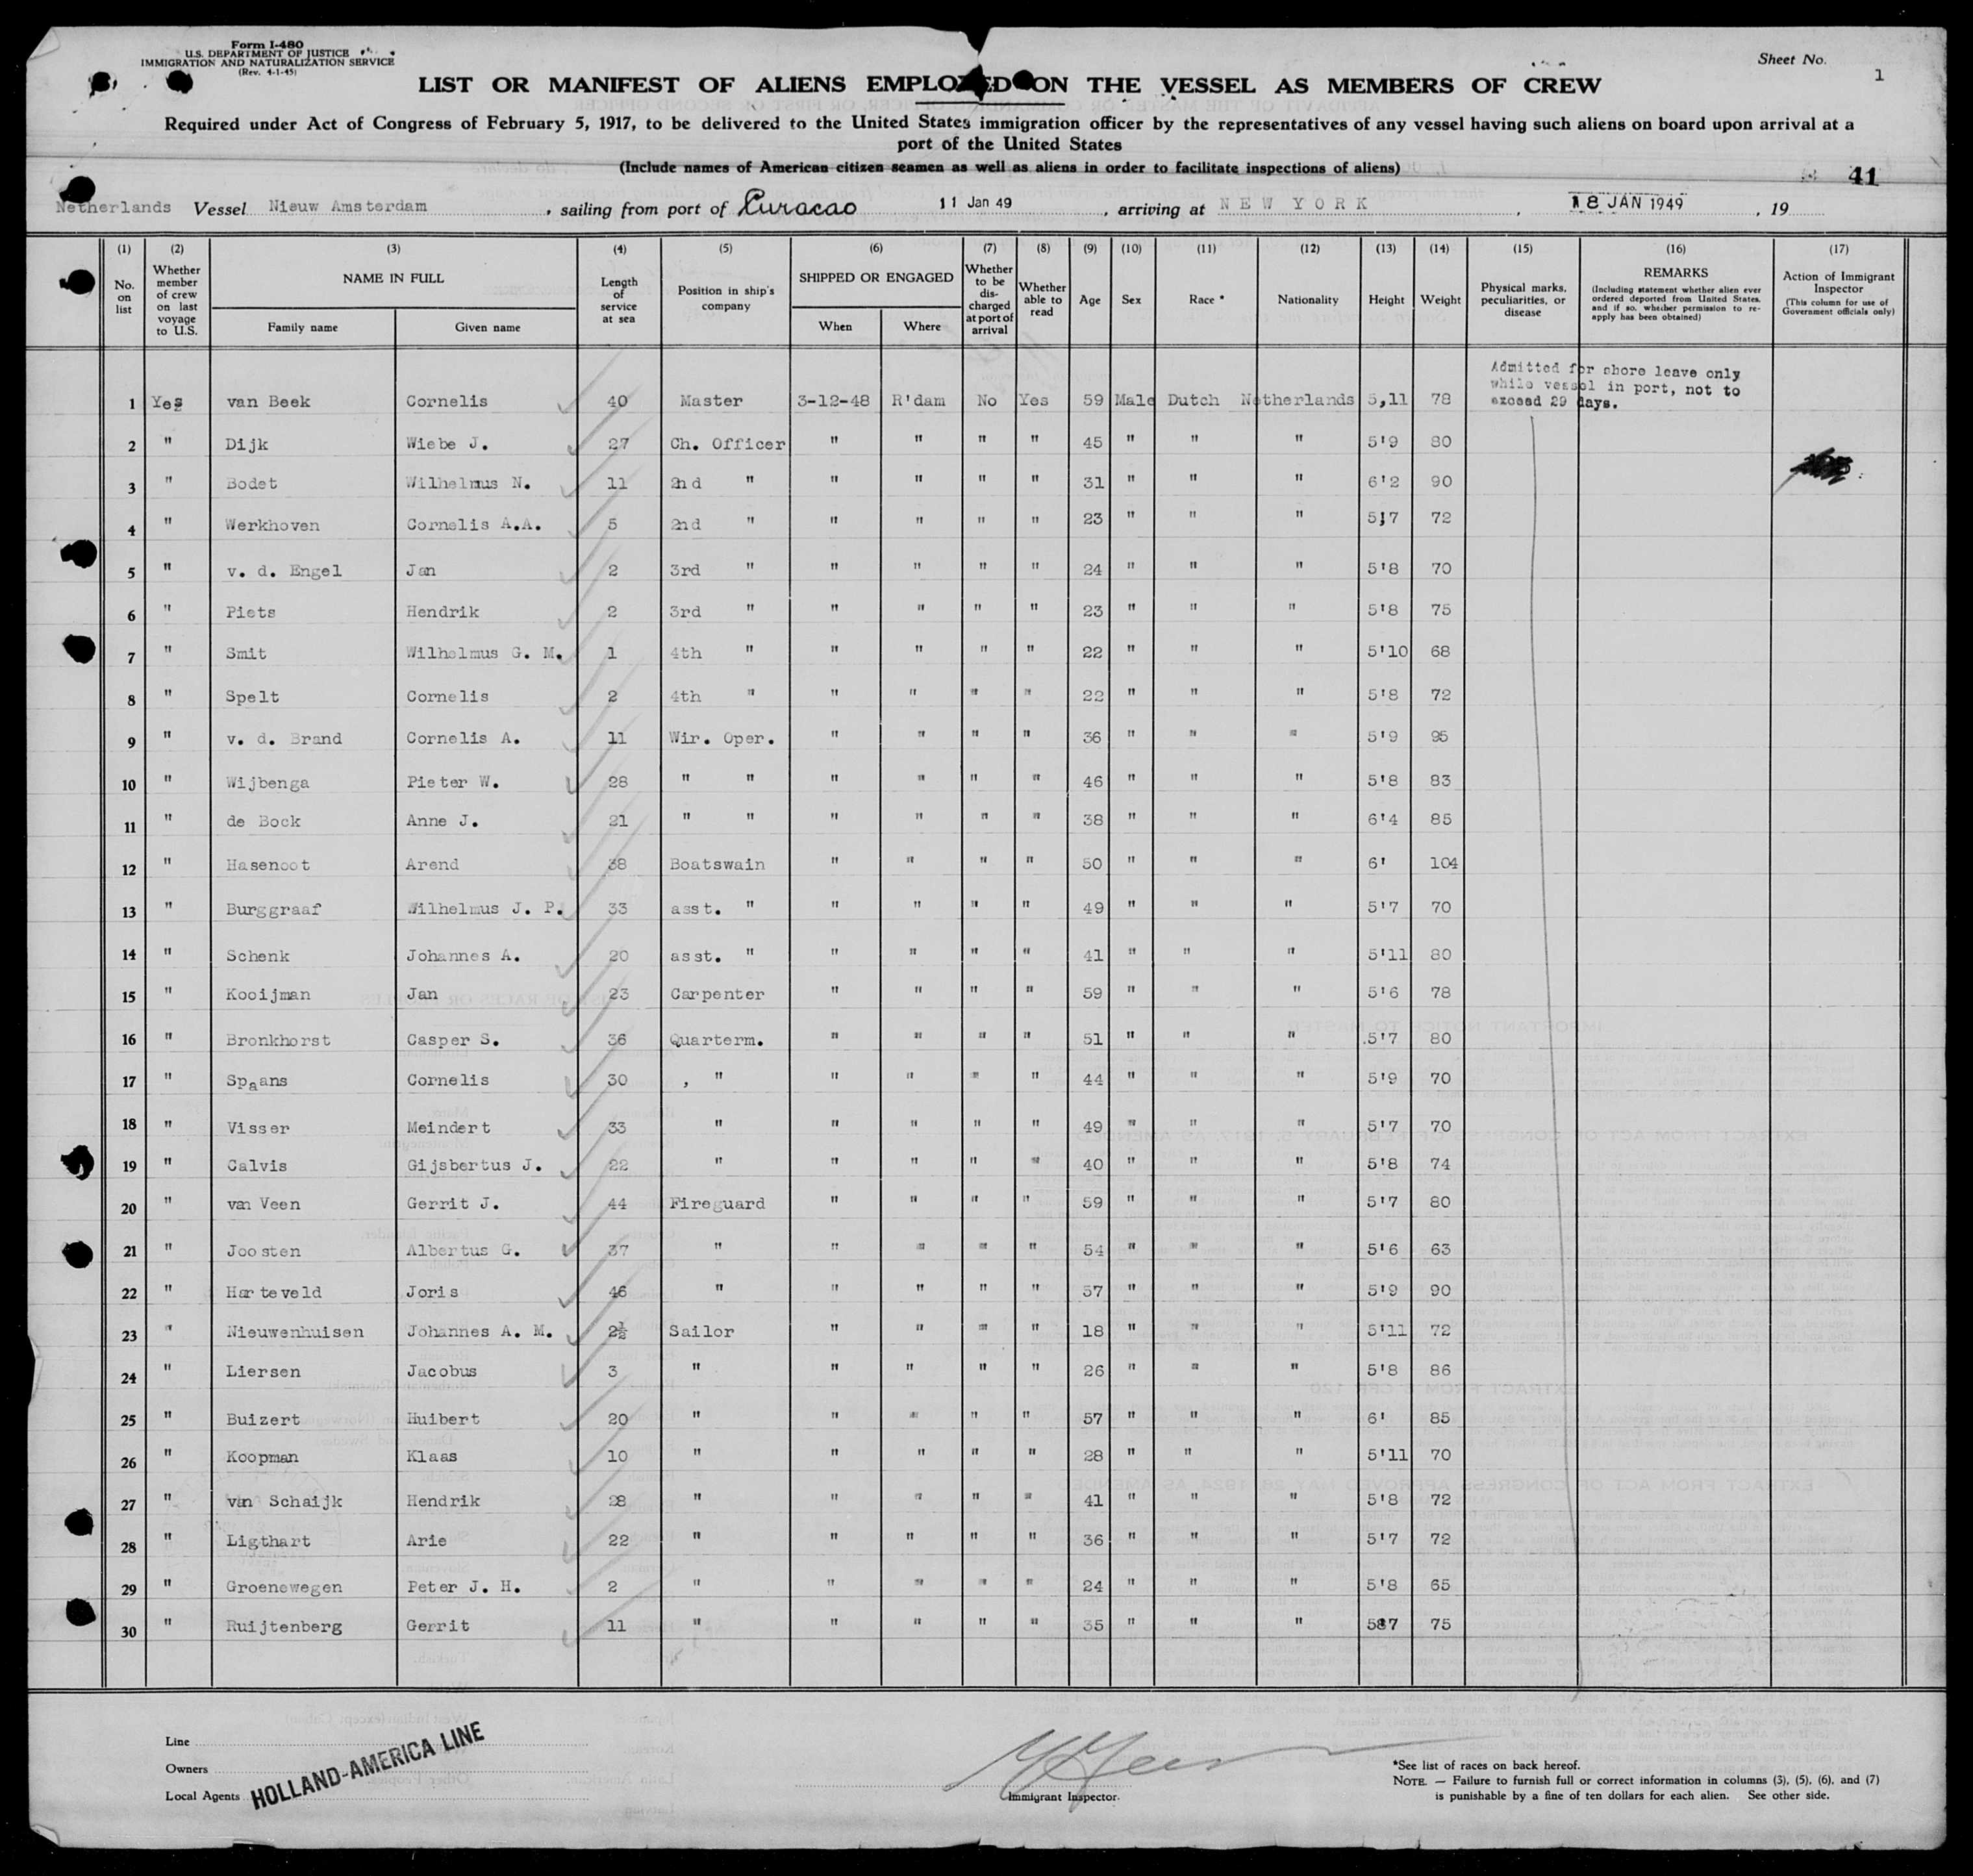 Form I-480
U.S. DEPARTMENT OF JUSTICE
IMMIGRATION AND NATURALIZATION SERVICE
(Rev. 4-1-45)
Sheet No. 1
LIST OR MANIFEST OF ALIENS EMPLOYED ON THE VESSEL AS MEMBERS OF CREW
Required under Act of Congress of February 5, 1917, to be delivered to the United States immigration officer by the representatives of any vessel having such aliens on board upon arrival at a
port of the United States
(Include names of American citizen seamen as well as aliens in order to facilitate inspections of aliens)
41
Netherlands Vessel Nieuw Amsterdam , sailing from port of Curacao 11 Jan 49 , arriving at NEW YORK , 18 JAN 1949 , 19
(1) (2) (3) (4) (5) (6) (7) (8) (9) (10) (11) (12) (13) (14) (15) (16) (17)
No. on list
Whether member of crew on last voyage to U.S.
NAME IN FULL
Family name
Given name
Length of service at sea
Position in ship's company
SHIPPED OR ENGAGED
When
Where
Whether to be discharged at port of arrival
Whether able to read
Age
Sex
Race *
Nationality
Height
Weight
Physical marks, peculiarities, or disease
REMARKS
(Including statement whether alien ever ordered deported from United States, and if so, whether permission to re-apply has been obtained)
Action of Immigrant Inspector
(This column for use of Government officials only)
Admitted for shore leave only
while vessel in port, not to
exceed 29 days.
1 Yes van Beek Cornelis 40 Master 3-12-48 R'dam No Yes 59 Male Dutch Netherlands 5,11 78
2 " Dijk Wiebe J. 27 Ch. Officer " " " " 45 " " " 5'9 80
3 " Bodet Wilhelmus N. 11 2nd " " " " " 31 " " " 6'2 90
4 " Werkhoven Cornelis A.A. 5 2nd " " " " " 23 " " " 5'7 72
5 " v. d. Engel Jan 2 3rd " " " " " 24 " " " 5'8 70
6 " Piets Hendrik 2 3rd " " " " " 23 " " " 5'8 75
7 " Smit Wilhelmus G. M. 1 4th " " " " " 22 " " " 5'10 68
8 " Spelt Cornelis 2 4th " " " " " 22 " " " 5'8 72
9 " v. d. Brand Cornelis A. 11 Wir. Oper. " " " " 36 " " " 5'9 95
10 " Wijbenga Pieter W. 28 " " " " " " 46 " " " 5'8 83
11 " de Bock Anne J. 21 " " " " " " 38 " " " 6'4 85
12 " Hasenoot Arend 38 Boatswain " " " " 50 " " " 6' 104
13 " Burggraaf Wilhelmus J. P. 33 asst. " " " " " 49 " " " 5'7 70
14 " Schenk Johannes A. 20 asst. " " " " " 41 " " " 5'11 80
15 " Kooijman Jan 23 Carpenter " " " " 59 " " " 5'6 78
16 " Bronkhorst Casper S. 36 Quarterm. " " " " 51 " " " 5'7 80
17 " Spaans Cornelis 30 , " " " " " 44 " " " 5'9 70
18 " Visser Meindert 33 " " " " " 49 " " " 5'7 70
19 " Calvis Gijsbertus J. 22 " " " " " 40 " " " 5'8 74
20 " van Veen Gerrit J. 44 Fireguard " " " " 59 " " " 5'7 80
21 " Joosten Albertus G. 37 " " " " " 54 " " " 5'6 63
22 " Harteveld Joris 46 " " " " " 57 " " " 5'9 90
23 " Nieuwenhuisen Johannes A. M. 2½ Sailor " " " " 18 " " " 5'11 72
24 " Liersen Jacobus 3 " " " " " 26 " " " 5'8 86
25 " Buizert Huibert 20 " " " " " 57 " " " 6' 85
26 " Koopman Klaas 10 " " " " " 28 " " " 5'11 70
27 " van Schaijk Hendrik 28 " " " " " 41 " " " 5'8 72
28 " Ligthart Arie 22 " " " " " 36 " " " 5'7 72
29 " Groenewegen Peter J. H. 2 " " " " " 24 " " " 5'8 65
30 " Ruijtenberg Gerrit 11 " " " " " 35 " " " 587 75
Line
Owners
Local Agents
HOLLAND-AMERICA LINE
Immigrant Inspector.
*See list of races on back hereof.
NOTE. — Failure to furnish full or correct information in columns (3), (5), (6), and (7)
is punishable by a fine of ten dollars for each alien. See other side.